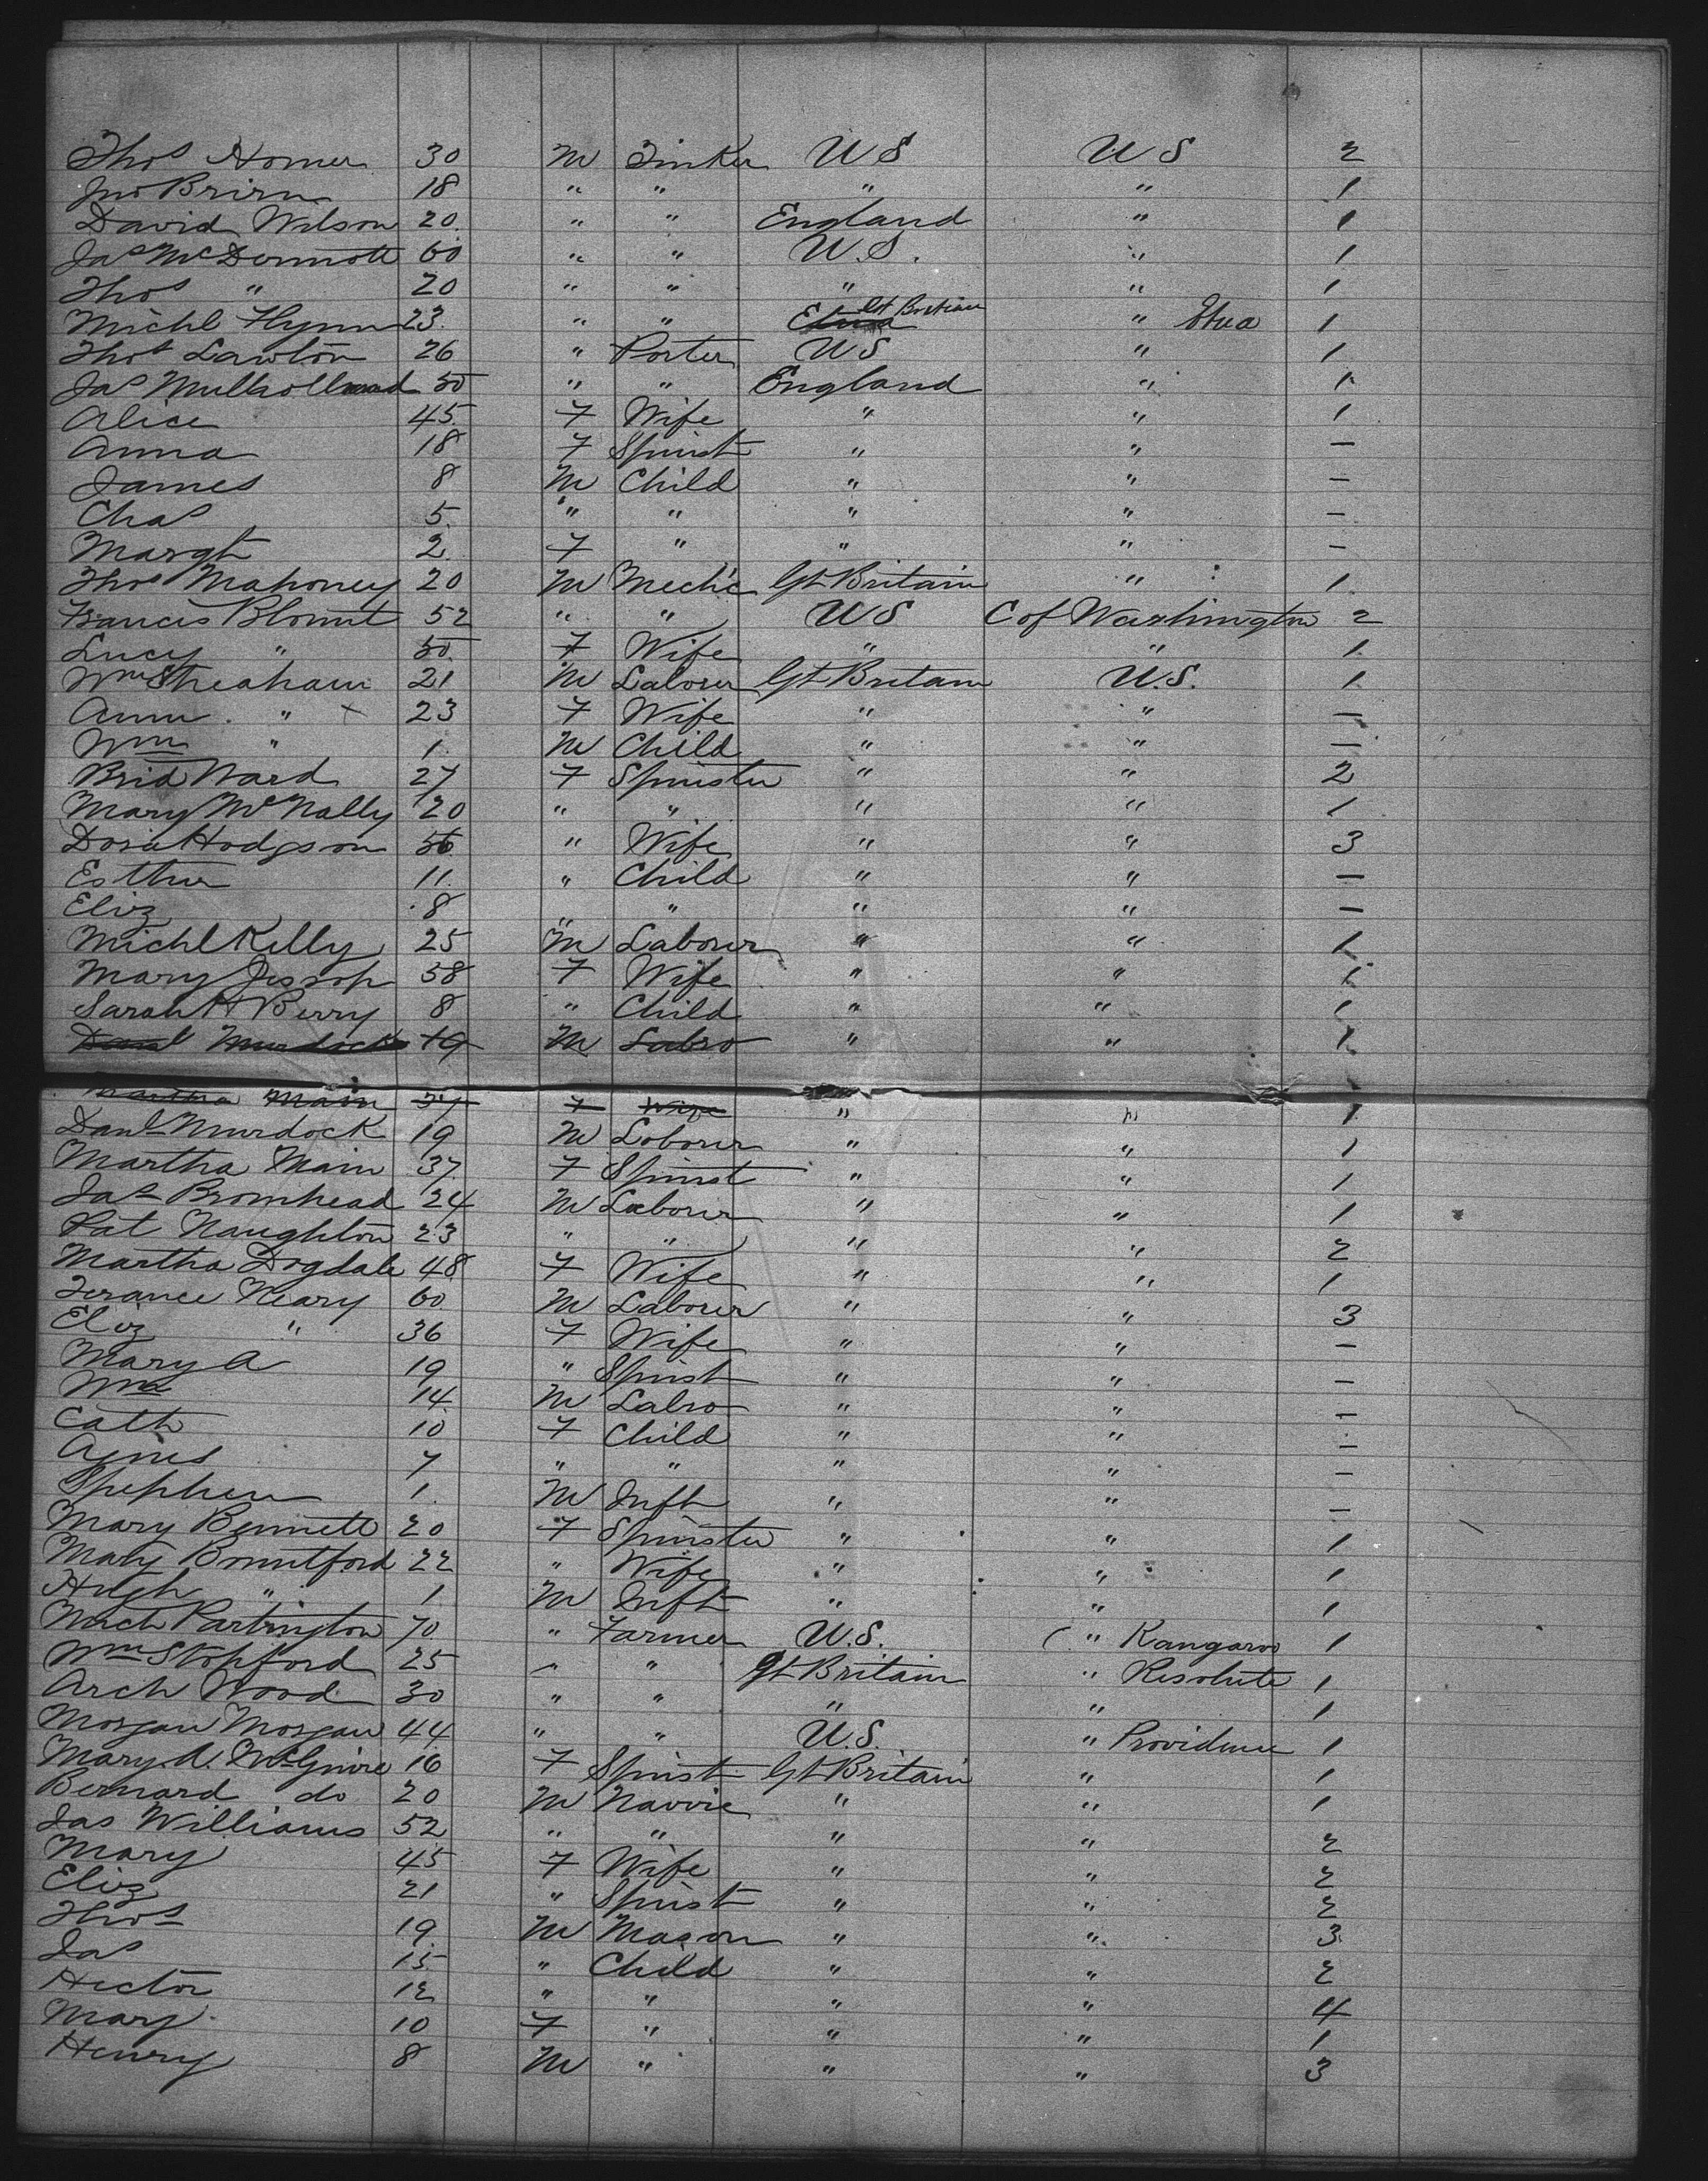 Thos Homer 30 M Tinker U S U S 2
Jno Brirn 18 " " " " 1
David Wilson 20 " " England " 1
Jas McDermott 60 " " U.S. " 1
Thos " 20 " " " " 1
Michl Flynn 23 " " Etna Gt Britain " Etna 1
Thos Lawton 26 " Porter US " 1
Jas Mulholland 50 " " England " 1
Alice 45 F Wife " " 1
Anna 18 F Spinst " " —
James 8 M Child " " —
Chas 5 " " " " —
Margt 2 F " " " —
Thos Mahoney 20 M Mechc Gt Britain " 1
Francis Blount 52 " " US C of Washington 2
Lucy " 50 F Wife " " 1
Wm Sheaham 21 M Laborer Gt Britain U.S. 1
Ann " 23 F Wife " " —
Wm " 1 M Child " " —
Brid Ward 27 F Spinster " " 2
Mary McNally 20 " " " " 1
Dora Hodgson 56 " Wife " " 3
Esther 11 " Child " " —
Eliz 8 " " " " —
Michl Kelly 25 M Laborer " " 1
Mary Jessop 58 F Wife " " 1
Sarah H Berry 8 " Child " " 1
Danl Murdock 19 M Labro " " 1
Martha Main 37 F Wife " " 1
Danl Murdock 19 M Laborer " " 1
Martha Main 37 F Spinst " " 1
Jas Bromhead 24 M Laborer " " 1
Pat Naughton 23 " " " " 2
Martha Dogdale 48 F Wife " " 1
Terance Neary 60 M Laborer " " 3
Eliz " 36 F Wife " " —
Mary A 19 " Spinst " " —
Wm 14 M Labro " " —
Cath 10 F Child " " —
Agnes 7 " " " " —
Spephen 1 M Inft " " —
Mary Bennett 20 F Spinster " " 1
Mary Bruntford 22 " Wife " " 1
Hugh " 1 M Inft " " 1
Partington 70 " Farmer U.S. " Kangaroo 1
Wm Stopford 25 " " Gt Britain " Resolute 1
Arch Wood 30 " " " " 1
Morgan Morgan 44 " " U.S. " Providence 1
Mary A. McGuire 16 F Spinst Gt Britain " 1
Bernard do 20 M Navvie " " 1
Jas Williams 52 " " " " 2
Mary 45 F Wife " " 2
Eliz 21 " Spinst " " 2
Thos 19 M Mason " " 3
Jas 15 " Child " " 2
Hector 12 " " " " 4
Mary 10 F " " " 1
Henry 8 M " " " 3